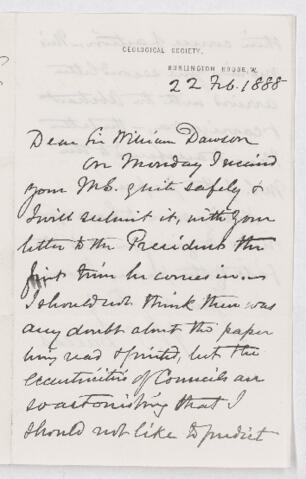 GEOLOGICAL SOCIETY,
BURLINGTON HOUSE, W.
22 Feb. 1888
Dear Sir William Dawson
On Monday I received
your MS. quite safely &
I will submit it, with your
letter to the President the
first time he comes in.
I should not think there was
any doubt about the paper
being read & printed, but the
eccentricities of Councils are
so astonishing that I
should not like to predict